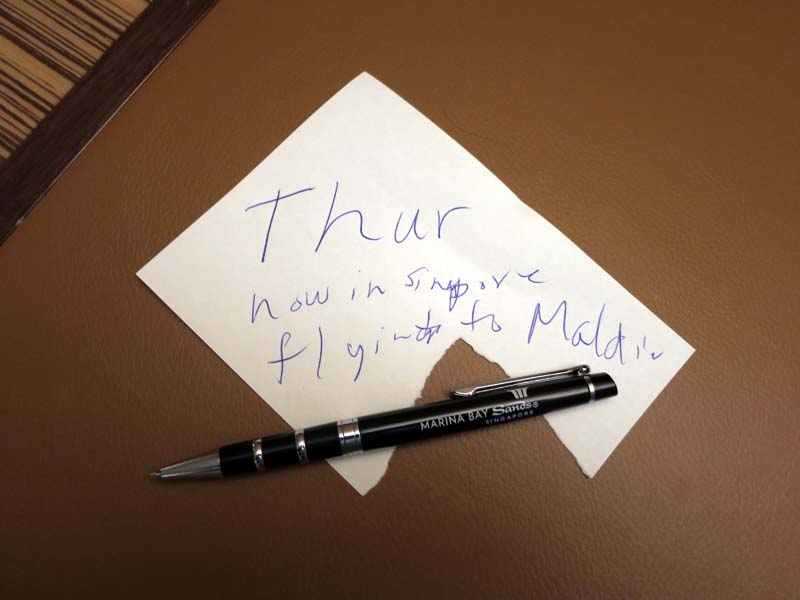 Thur
now in singpore
flying to Maldiv
MARINA BAY Sands®
SINGAPORE